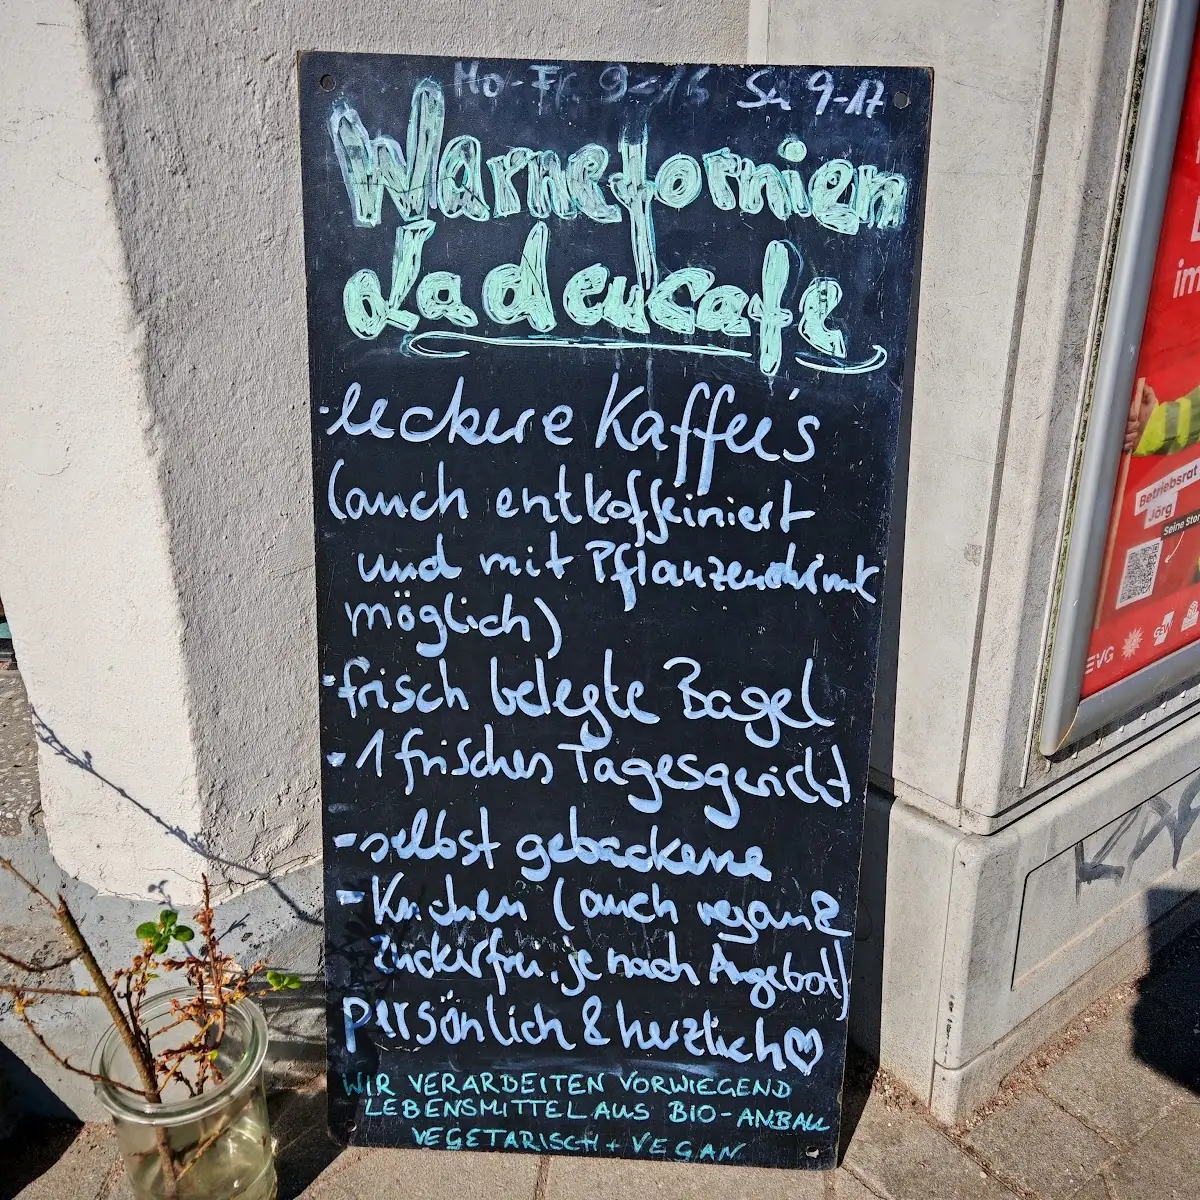 Mo-Fr. 9-16 Sa 9-17
Warnefornien
Ladencafe
-leckere Kaffee's
(auch entkoffeiniert
und mit Pflanzendrink
möglich)
-frisch belegte Bagel
-1 frisches Tagesgericht
-selbst gebackene
-Kuchen (auch vegan &
zuckerfrei, je nach Angebot)
persönlich & herzlich♡
WIR VERARBEITEN VORWIEGEND
LEBENSMITTEL AUS BIO-ANBAU
VEGETARISCH + VEGAN
im
Betriebsrat
Jörg
Seine Stor
EVG